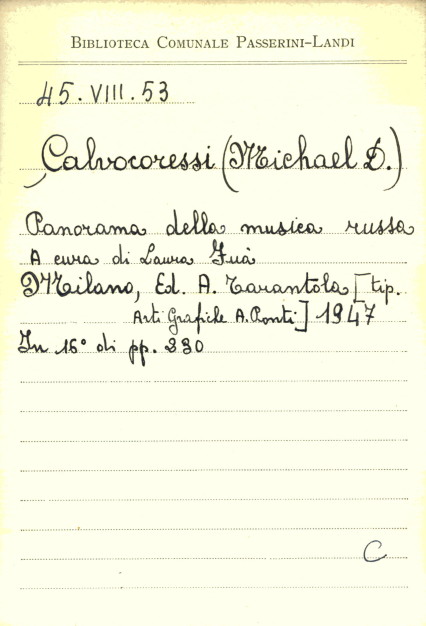 BIBLIOTECA COMUNALE PASSERINI-LANDI
45.VIII.53
Calvocoressi (Michael D.)
Panorama della musica russa
A cura di Laura Fuà
Milano, Ed. A. Tarantola [tip.
Arti Grafiche A. Ponti] 1947
In 16° di pp. 230
C